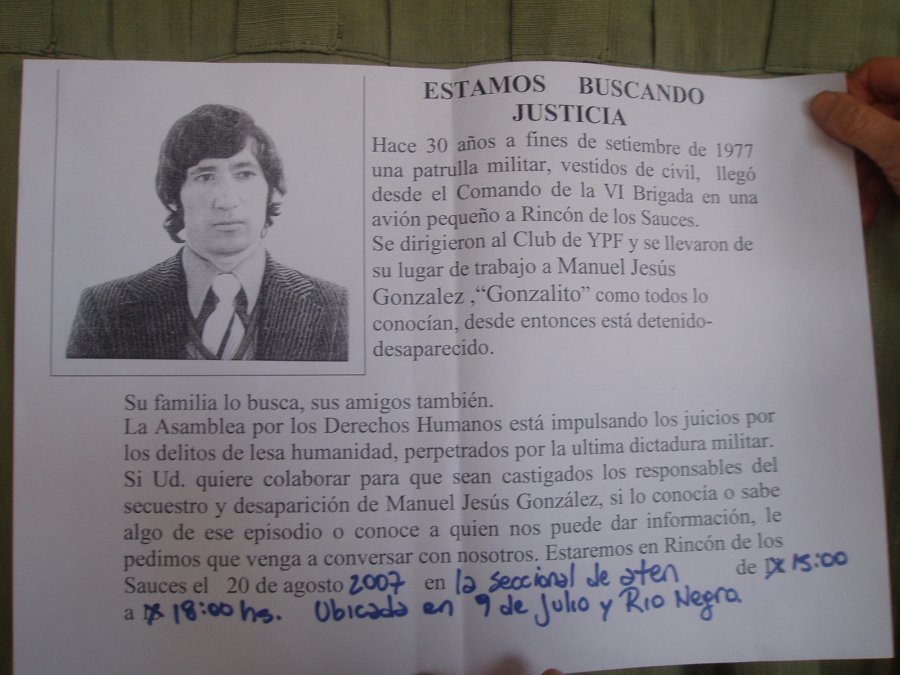 ESTAMOS BUSCANDO
JUSTICIA
Hace 30 años a fines de setiembre de 1977
una patrulla militar, vestidos de civil, llegó
desde el Comando de la VI Brigada en una
avión pequeño a Rincón de los Sauces.
Se dirigieron al Club de YPF y se llevaron de
su lugar de trabajo a Manuel Jesús
Gonzalez ,“Gonzalito” como todos lo
conocían, desde entonces está detenido-
desaparecido.
Su familia lo busca, sus amigos también.
La Asamblea por los Derechos Humanos está impulsando los juicios por
los delitos de lesa humanidad, perpetrados por la ultima dictadura militar.
Si Ud. quiere colaborar para que sean castigados los responsables del
secuestro y desaparición de Manuel Jesús González, si lo conocía o sabe
algo de ese episodio o conoce a quien nos puede dar información, le
pedimos que venga a conversar con nosotros. Estaremos en Rincón de los
Sauces el 20 de agosto 2007 en la seccional de aten de 15:00
a 18:00 hs. Ubicada en 9 de Julio y Rio Negro.